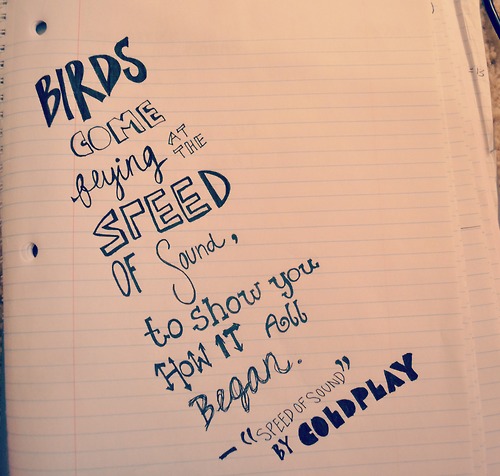 BIRDS
COME
flying AT THE
SPEED
OF Sound,
to show you
HOW IT All
Began.
— "SPEED OF SOUND"
BY COLDPLAY